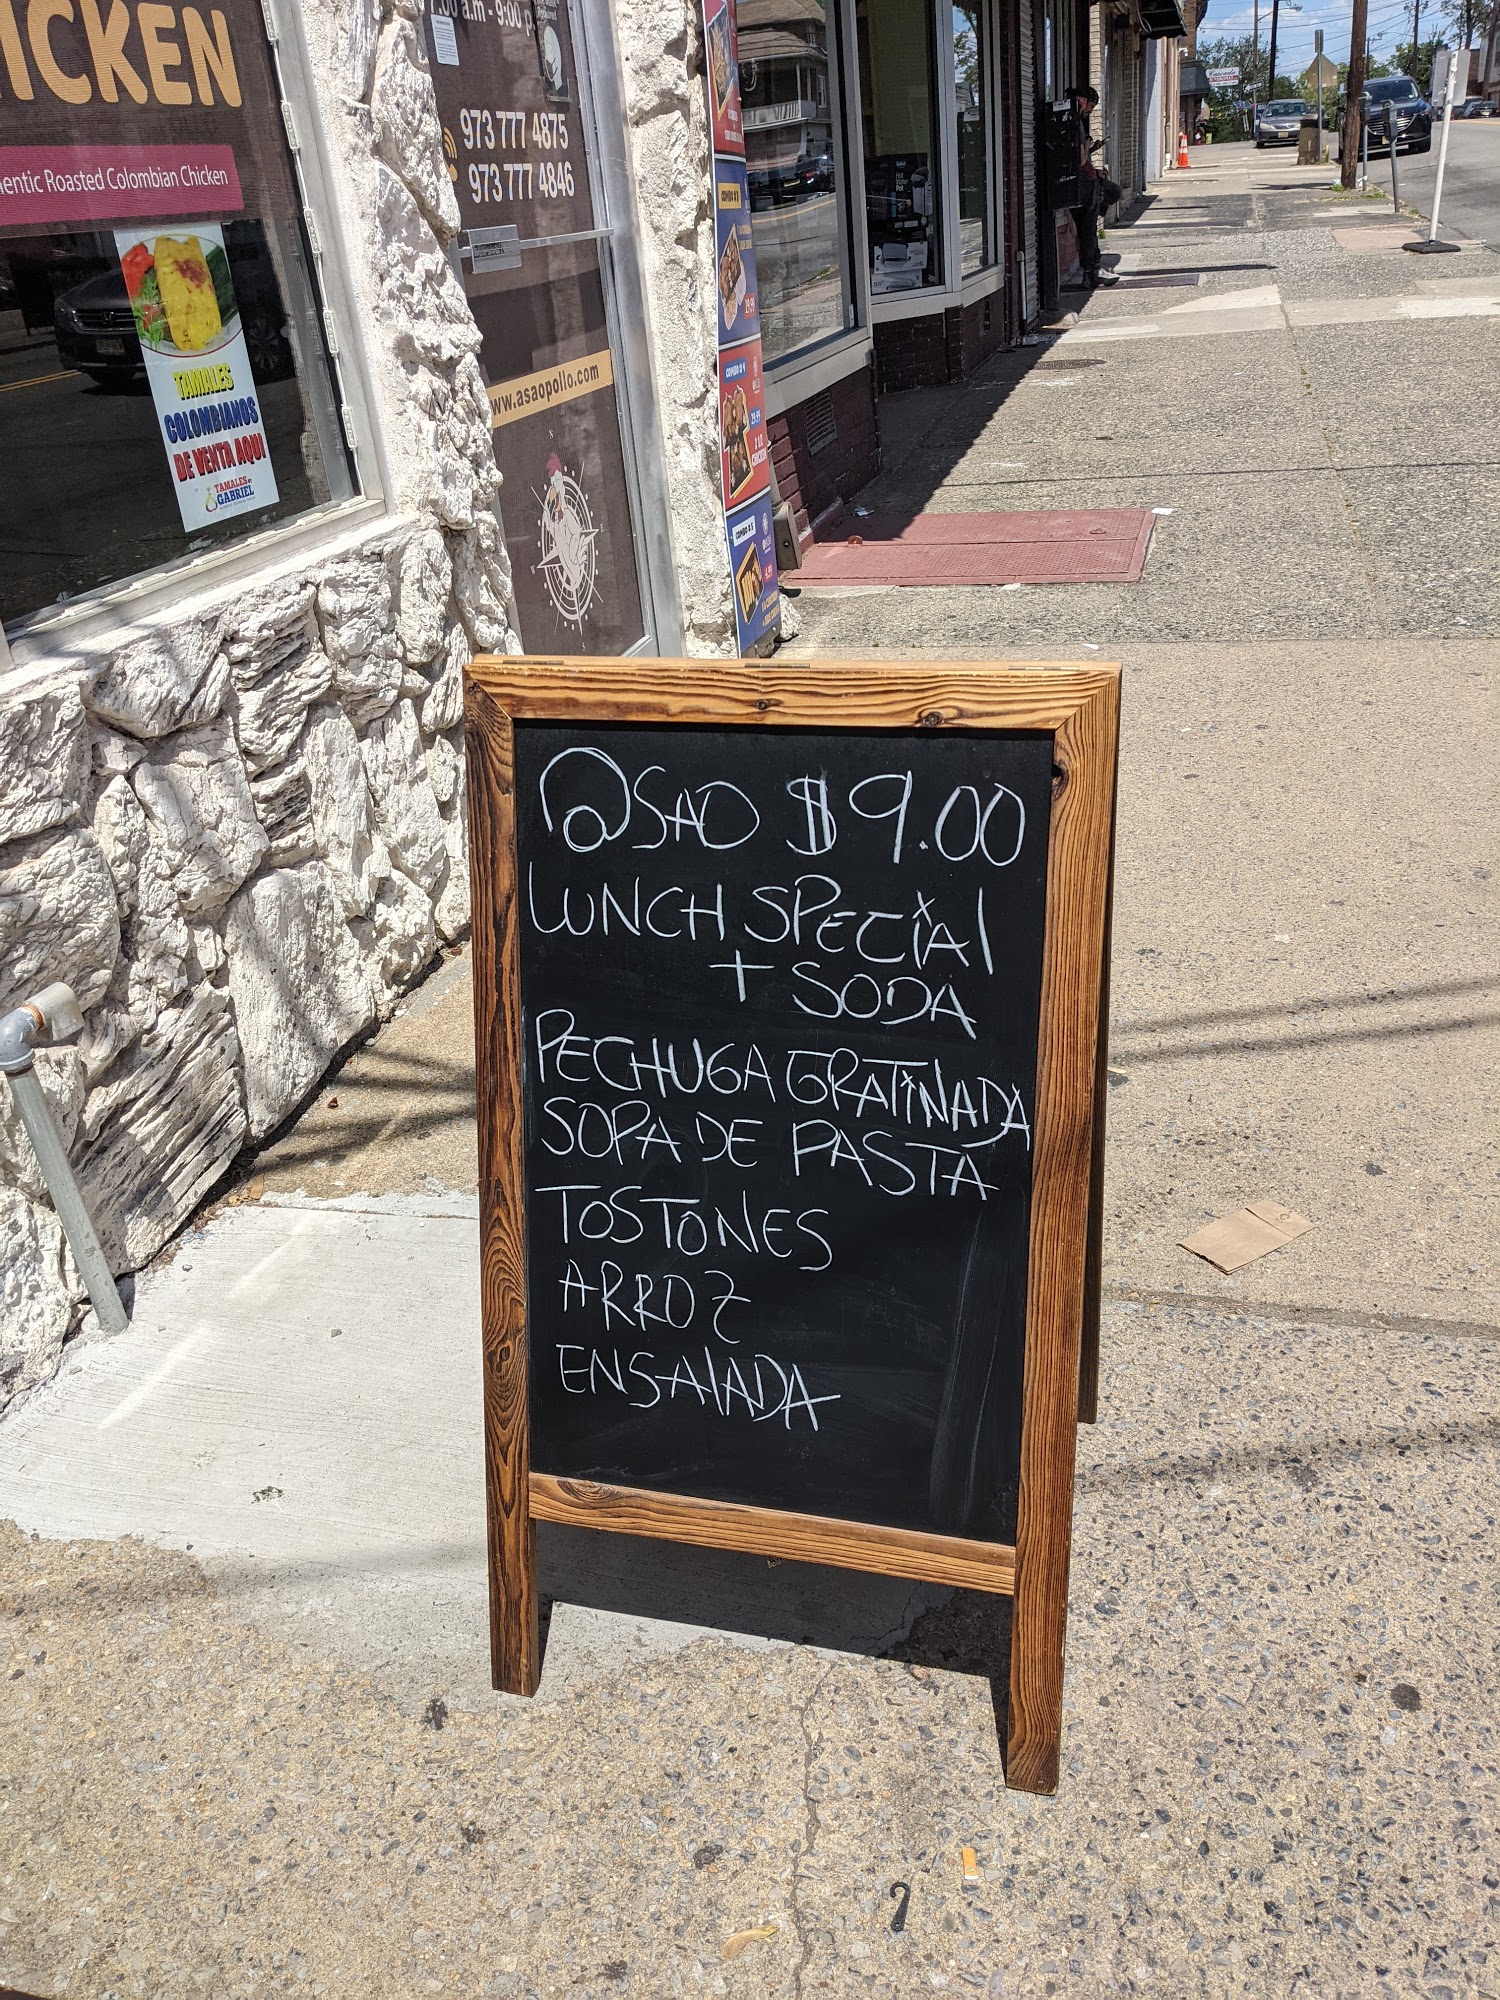 ICKEN
hentic Roasted Colombian Chicken
TAMALES
COLOMBIANOS
DE VENTA AQUI
TAMALES BY
GABRIEL
7:00 a.m - 9:00 p
973 777 4875
973 777 4846
www.asaopollo.com
COMBO # 3
COMBO # 4
COMBO # 5
@SAO $9.00
LUNCH SPECIAL
+ SODA
PECHUGA GRATINADA
SOPA DE PASTA
TOSTONES
ARROZ
ENSALADA